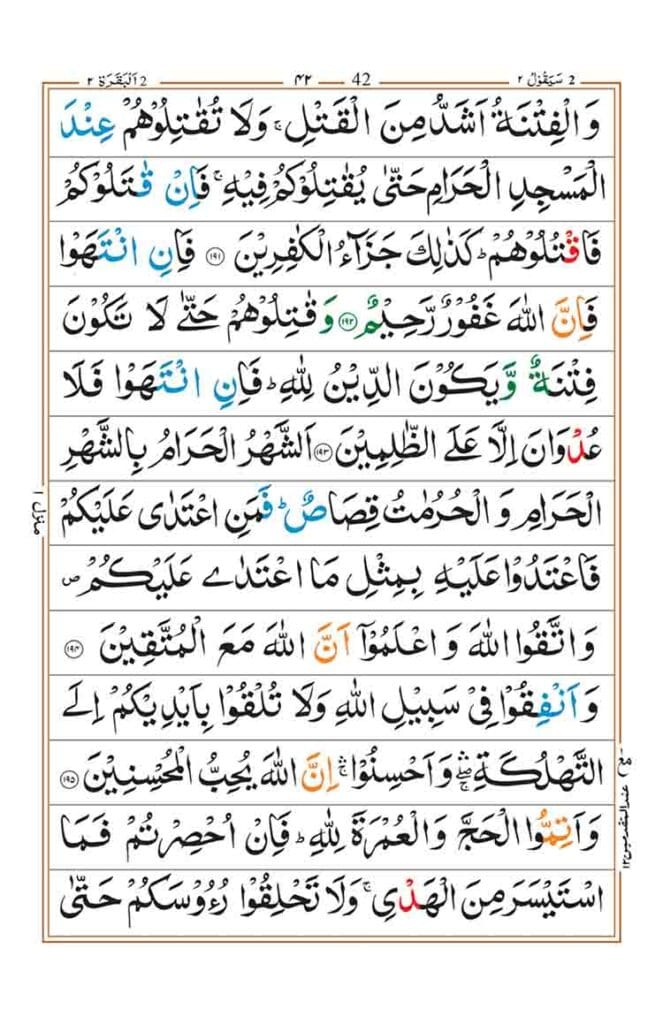 2 سَيَقُوْلُ ٢ — 42 — ٤٢ — 2 اَلْبَقَرَة ٢
وَالْفِتْنَةُ اَشَدُّ مِنَ الْقَتْلِ ۚ وَلَا تُقٰتِلُوْهُمْ عِنْدَ
الْمَسْجِدِ الْحَرَامِ حَتّٰى يُقٰتِلُوْكُمْ فِيْهِ ۚ فَاِنْ قٰتَلُوْكُمْ
فَاقْتُلُوْهُمْ ؕ كَذٰلِكَ جَزَآءُ الْكٰفِرِيْنَ ۝١٩١ فَاِنِ انْتَهَوْا
فَاِنَّ اللّٰهَ غَفُوْرٌ رَّحِيْمٌ ۝١٩٢ وَقٰتِلُوْهُمْ حَتّٰى لَا تَكُوْنَ
فِتْنَةٌ وَّيَكُوْنَ الدِّيْنُ لِلّٰهِ ؕ فَاِنِ انْتَهَوْا فَلَا
عُدْوَانَ اِلَّا عَلَى الظّٰلِمِيْنَ ۝١٩٣ اَلشَّهْرُ الْحَرَامُ بِالشَّهْرِ
الْحَرَامِ وَالْحُرُمٰتُ قِصَاصٌ ؕ فَمَنِ اعْتَدٰى عَلَيْكُمْ
فَاعْتَدُوْا عَلَيْهِ بِمِثْلِ مَا اعْتَدٰى عَلَيْكُمْ ص
وَاتَّقُوا اللّٰهَ وَاعْلَمُوْۤا اَنَّ اللّٰهَ مَعَ الْمُتَّقِيْنَ ۝١٩٤
وَاَنْفِقُوْا فِيْ سَبِيْلِ اللّٰهِ وَلَا تُلْقُوْا بِاَيْدِيْكُمْ اِلَى
التَّهْلُكَةِ ۛۖ وَاَحْسِنُوْا ۛۚ اِنَّ اللّٰهَ يُحِبُّ الْمُحْسِنِيْنَ ۝١٩٥
وَاَتِمُّوا الْحَجَّ وَالْعُمْرَةَ لِلّٰهِ ؕ فَاِنْ اُحْصِرْتُمْ فَمَا
اسْتَيْسَرَ مِنَ الْهَدْيِ ۚ وَلَا تَحْلِقُوْا رُءُوْسَكُمْ حَتّٰى
منزل ١